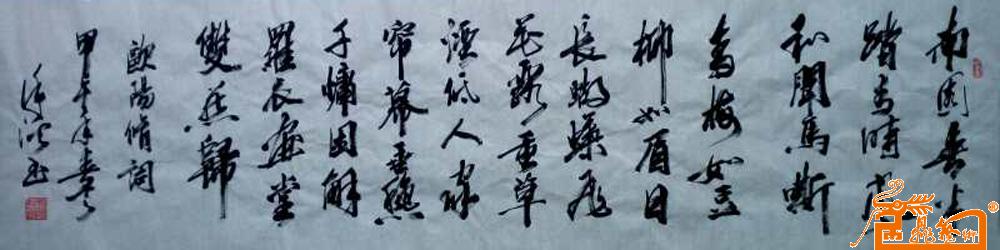 南園春半
踏青時風
和聞馬嘶
青梅如豆
柳如眉日
長蝴蝶飛
花露重草
煙低人家
帘幕垂
千慵困解
羅衣畫堂
雙燕歸
歐陽脩詞
甲午年春